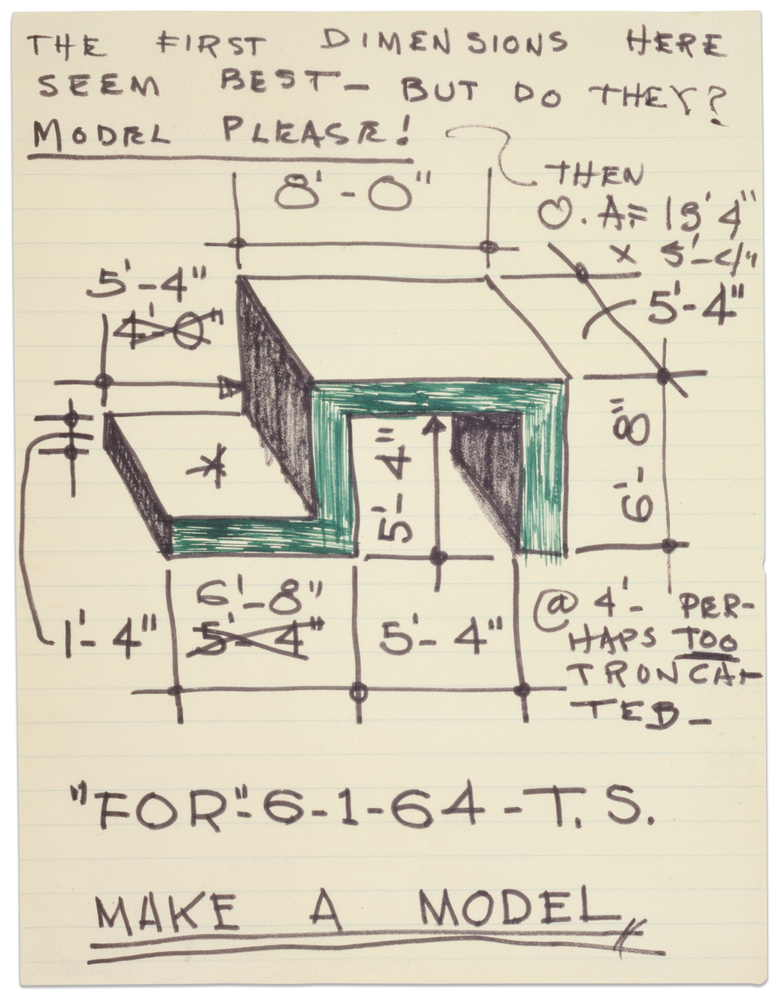 THE FIRST DIMENSIONS HERE
SEEM BEST— BUT DO THEY?
MODEL PLEASE!
8'-0"
THEN
O.A.= 13'4"
x 5'-4"
5'-4"
4'-0"
5'-4"
6'-8"
5'-4"
1'-4"
6'-8"
5'-4"
5'-4"
@ 4'- PER-
HAPS TOO
TRONCA-
TED—
"FOR"-6-1-64-T.S.
MAKE A MODEL